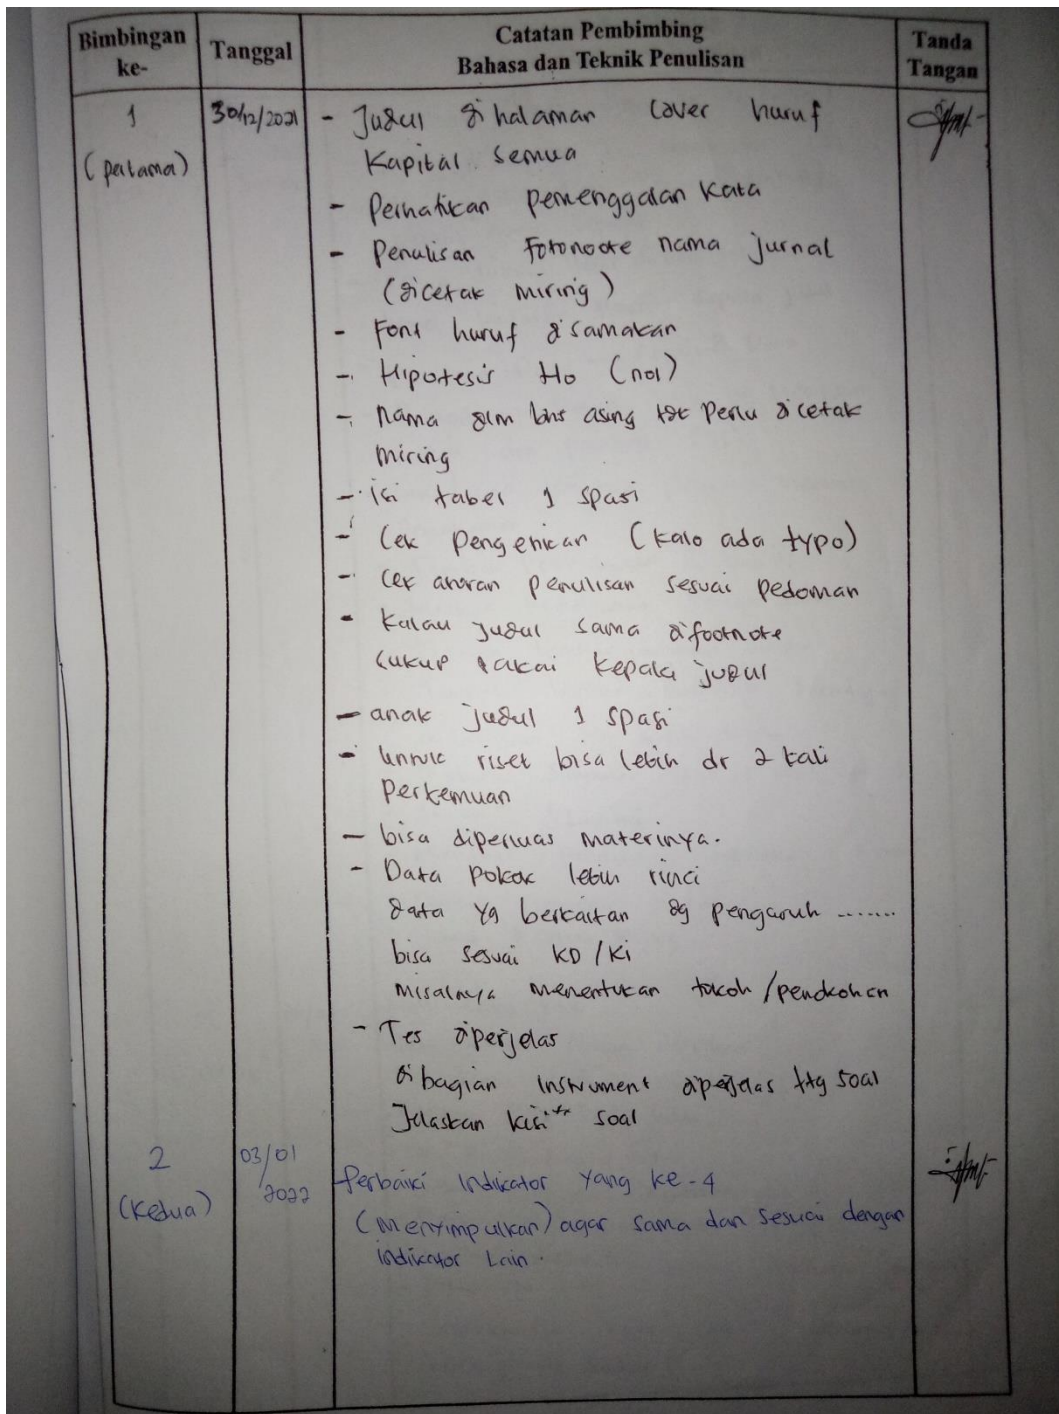 Bimbingan ke-
Tanggal
Catatan Pembimbing
Bahasa dan Teknik Penulisan
Tanda Tangan
1
(pertama)
30/12/2021
- Judul dihalaman cover huruf
Kapital semua
- Perhatikan pemenggalan kata
- Penulisan fotonoote nama jurnal
(dicetak miring)
- Font huruf disamakan
- Hipotesis Ho (nol)
- nama dlm bhs asing tdk perlu dicetak
miring
- isi tabel 1 spasi
- Cek pengetikan (kalo ada typo)
- cek aturan penulisan sesuai pedoman
- kalau judul sama difootnote
cukup pakai kepala judul
- anak judul 1 spasi
- untuk riset bisa lebih dr 2 kali
Pertemuan
- bisa diperluas materinya.
- Data pokok lebih rinci
data yg berkaitan dg pengaruh .......
bisa sesuai KD/Ki
misalnya menentukan tokoh/penokohan
- Tes diperjelas
dibagian instrument diperjelas ttg soal
Jelaskan kisi soal
2
(Kedua)
03/01
2022
Perbaiki Indikator yang ke-4
(Menyimpulkan) agar sama dan sesuai dengan
indikator Lain.